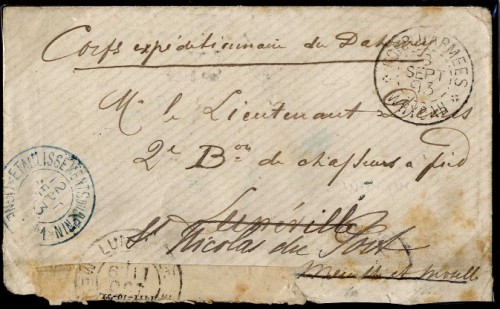 Corps expéditionnaire du Dahomey
M. le Lieutenant
2e Bon de chasseurs à pied
Lunéville
St Nicolas du Port
Meurthe et Moselle
CORR. D'ARMÉES
SEPT
93
ETABLISSEMENTS DU BENIN
93
LUN
11